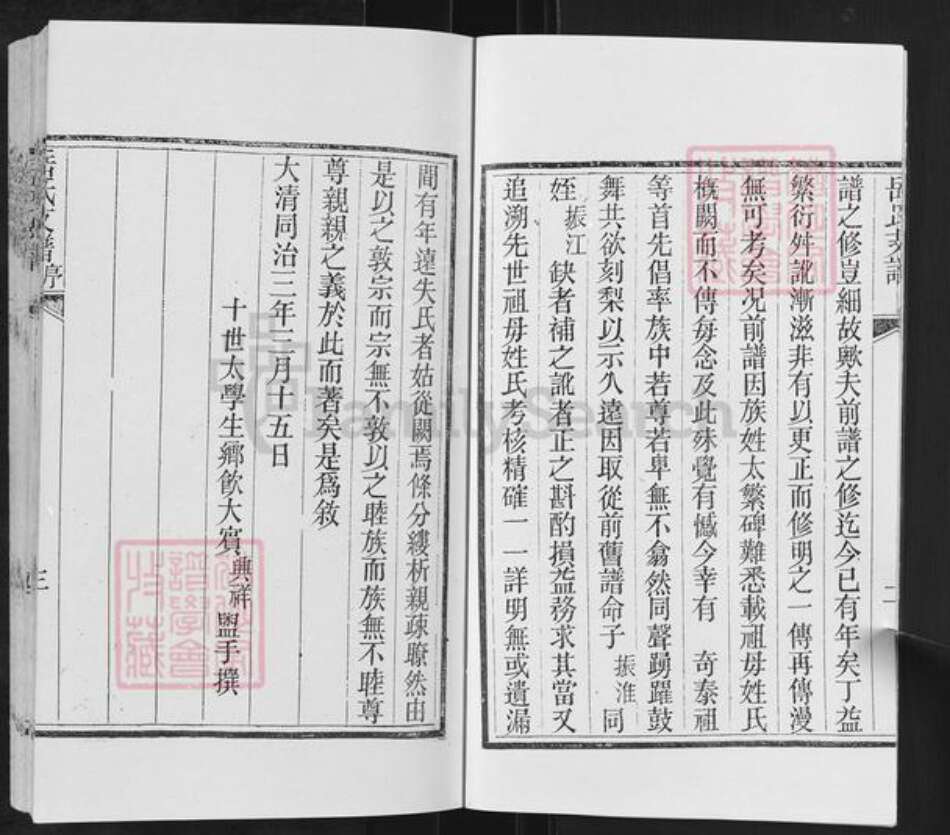 譜之修豈細故歟夫前譜之修迄今已有年矣丁益
繁衍舛訛漸滋非有以更正而修明之一傳再傳漫
無可考矣况前譜因族姓太繁碑難悉載祖母姓氏
槪闕而不傳每念及此殊覺有憾今幸有 奇泰祖
等首先倡率族中若尊若卑無不翕然同聲踴躍鼓
舞共欲刻梨以示久遠因取從前舊譜命子 振淮 同
姪 振江 缺者補之訛者正之斟酌損益務求其當又
追溯先世祖母姓氏考核精確一一詳明無或遺漏
二
間有年遠失氏者姑從闕焉條分縷析親疎瞭然由
是以之敦宗而宗無不敦以之睦族而族無不睦尊
尊親親之義於此而著矣是爲敘
大清同治三年三月十五日
十世太學生鄉飲大賓 興祥 盥手撰
氏支譜 序
三
譜學會
收藏
FamilySearch